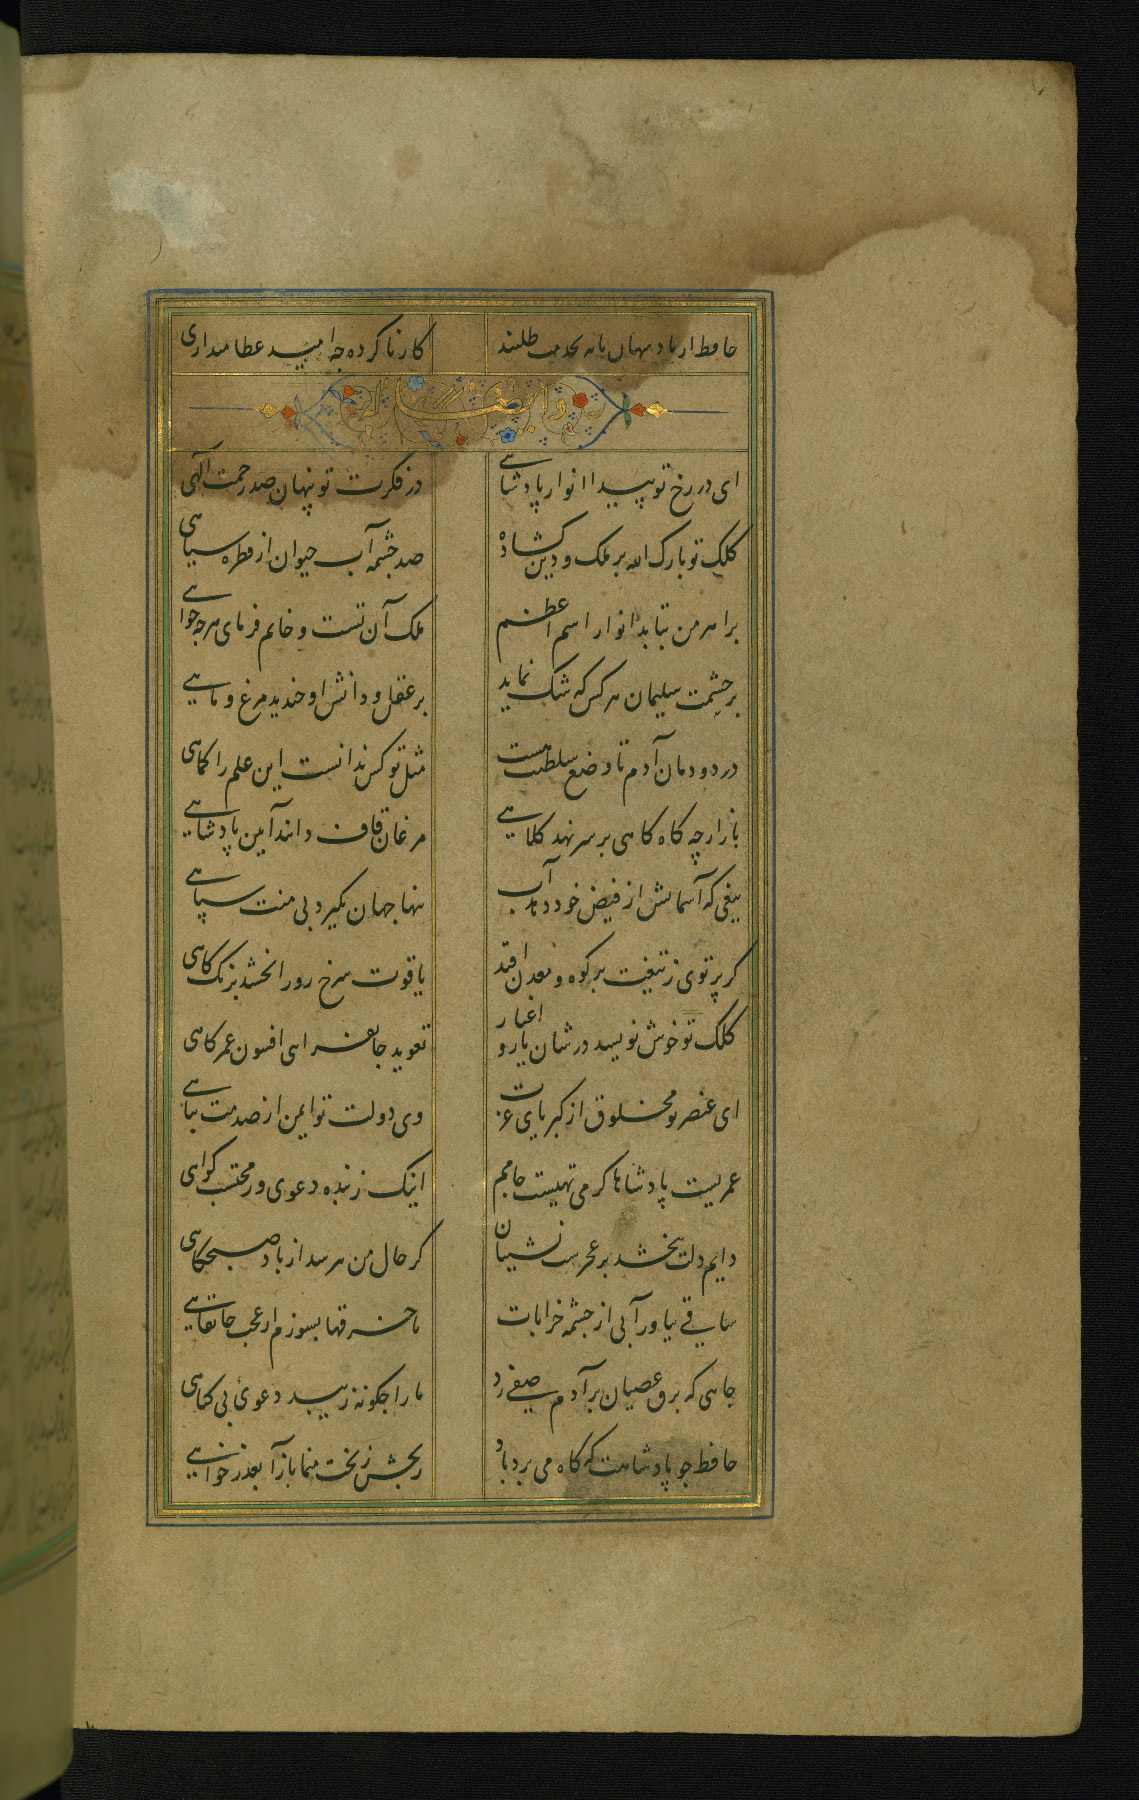 حافظ ار پادشهان پایه بخدمت طلبند کار ناکرده چه امید عطا میداری
وله ایضا
ای در رخ تو پیدا انوار پادشاهی در فکرت تو پنهان صد رحمت الهی
کلک تو بارک الله بر ملک و دین گشاده صد چشمه آب حیوان از قطره سیاهی
بر اهرمن نتابد انوار اسم اعظم ملک آن تست و خاتم فرمای هرچه خواهی
بر حشمت سلیمان هر کس که شک نماید بر عقل و دانش او خندید مرغ و ماهی
در دودمان آدم تا وضع سلطنت هست مثل تو کس ندانست این علم را کماهی
باز ارچه گاه گاهی بر سر نهد کلاهی مرغان قاف دانند آیین پادشاهی
تیغی که آسمانش از فیض خود دهد آب تنها جهان بگیرد بی منت سپاهی
گر پرتوی ز تیغت بر کوه و معدن افتد یاقوت سرخ رو را بخشد برنگ کاهی
کلک تو خوش نویسد در شان یار و اغیار تعوید جانفزای افسون عمر کاهی
ای عنصر تو مخلوق از کبریای عزت وی دولت تو ایمن از صدمت تباهی
عمریست پادشاها کز می تهیست جامم اینک ز بنده دعوی وز محتسب گواهی
دایم دلت ببخشد بر عجز شب نشینان گر حال من پرسد از باد صبحگاهی
ساقی بیاور آبی از چشمه خرابات تا خرقها بشوزم از عجب خانقاهی
جاهی که برق عصیان بر آدم صفی زد ما را چگونه زیبد دعوی بی گناهی
حافظ چو پادشاهت که گاه می برد باد رنجش ز بخت منما بازآ بعذر خواهی